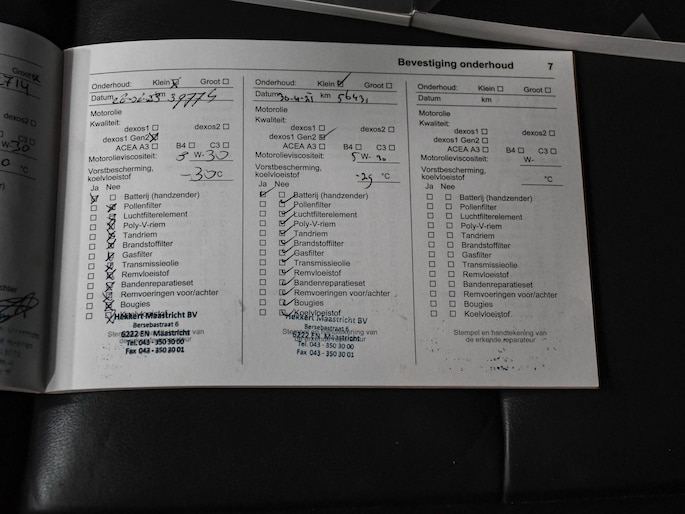 Bevestiging onderhoud 7
Onderhoud: Klein Groot
Datum km 39774
Motorolie
Kwaliteit:
dexos1 dexos2
dexos1 Gen2
ACEA A3 B4 C3
Motorolieviscositeit: 5 W-30
Vorstbescherming,
koelvloeistof -30 °C
Ja Nee
Batterij (handzender)
Pollenfilter
Luchtfilterelement
Poly-V-riem
Tandriem
Brandstoffilter
Gasfilter
Transmissieolie
Remvloeistof
Bandenreparatieset
Remvoeringen voor/achter
Bougies
Koelvloeistof
Hekkert Maastricht BV
Bersebastraat 6
6222 EN Maastricht
Tel. 043 - 350 30 00
Fax 043 - 350 30 01
Onderhoud: Klein Groot
Datum 30-4-21 km
Motorolie
Kwaliteit:
dexos1 dexos2
dexos1 Gen2
ACEA A3 B4 C3
Motorolieviscositeit: 5 W- 30
Vorstbescherming,
koelvloeistof °C
Ja Nee
Batterij (handzender)
Pollenfilter
Luchtfilterelement
Poly-V-riem
Tandriem
Brandstoffilter
Gasfilter
Transmissieolie
Remvloeistof
Bandenreparatieset
Remvoeringen voor/achter
Bougies
Koelvloeistof
Hekkert Maastricht BV
Bersebastraat 6
6222 EN Maastricht
Tel. 043 - 350 30 00
Fax 043 - 350 30 01
Onderhoud: Klein Groot
Datum km
Motorolie
Kwaliteit:
dexos1 dexos2
dexos1 Gen2
ACEA A3 B4 C3
Motorolieviscositeit: W-
Vorstbescherming,
koelvloeistof °C
Ja Nee
Batterij (handzender)
Pollenfilter
Luchtfilterelement
Poly-V-riem
Tandriem
Brandstoffilter
Gasfilter
Transmissieolie
Remvloeistof
Bandenreparatieset
Remvoeringen voor/achter
Bougies
Koelvloeistof
Stempel en handtekening van
de erkende reparateur